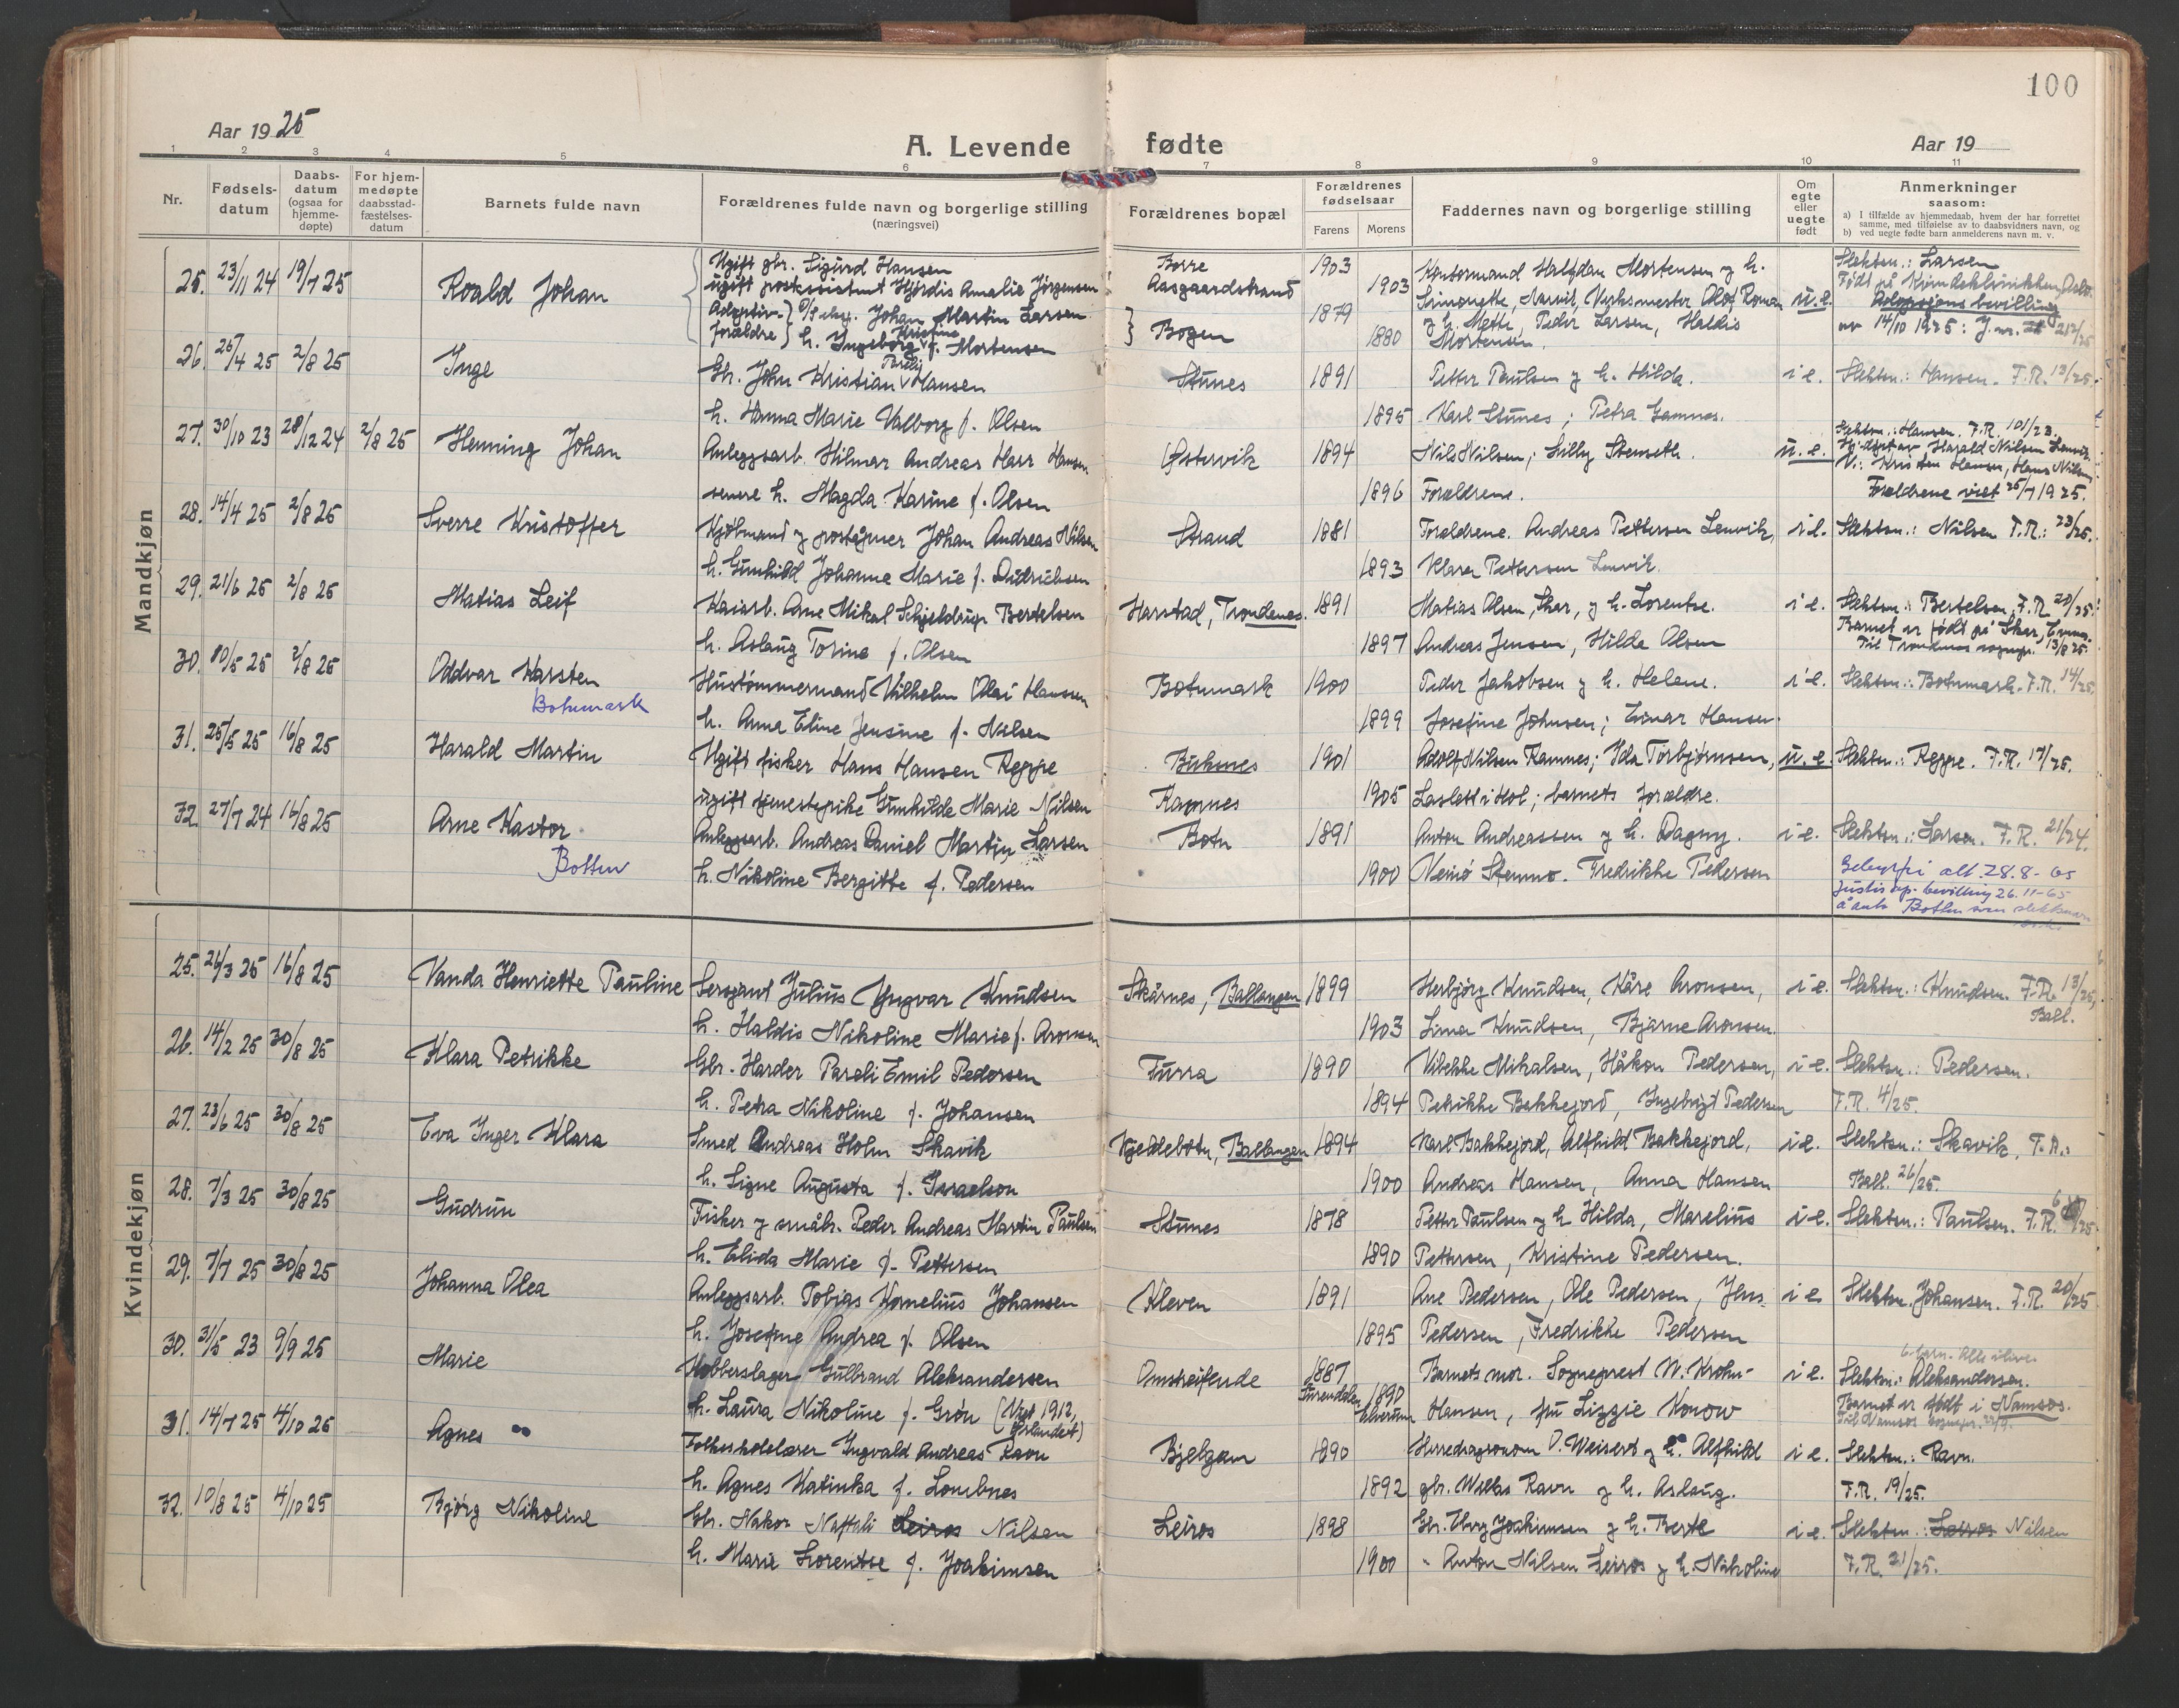 100
Aar 1925
A. Levende fødte
Aar 19
1 2 3 4 5 6 7 8 9 10 11
Nr.
Fødsels-datum
Daabs-datum (ogsaa for hjemme-døpte)
For hjem-medøpte daabsstad-fæstelses-datum
Barnets fulde navn
Forældrenes fulde navn og borgerlige stilling
(næringsvei)
Forældrenes bopæl
Forældrenes fødselsaar
Farens Morens
Faddernes navn og borgerlige stilling
Om egte eller uegte født
Anmerkninger
saasom:
a) I tilfælde av hjemmedaab, hvem der har forrettet samme, med tilføielse av to daabsvidners navn, og
b) ved uegte fødte barn anmelderens navn m. v.
Mandkjøn
25. 23/11 24 19/7 25 Roald Johan Ugift gbr. Sigurd Hansen Borre 1903 Kontormand Halfdan Mortensen og h. u.e. Slektsn.: Larsen
ugift postassistent Hjørdis Amalie Jörgensen Aasgaardstrand 1903 Simonette, Narvik, Verksmester Olof Roman Født på Kvindeklinikken, Oslo.
Adoptiv-forældre } Johan Martin Larsen Bogen 1879 og h. Mette, Peder Larsen, Haldis Adopsjons bevilling
h. Ingeborg Kristine f. Mortensen 1880 Mortensen. av 14/10 1925: J.nr. 212/25
26. 25/4 25 2/8 25 Inge Gbr. John Kristian Hansen Stunes 1891 Petter Paulsen og h. Hilda. i e. Slektsn.: Hansen. F.R. 13/25.
h. Hanna Marie Valborg f. Olsen 1895 Karl Stunes; Petra Gamnes.
27. 30/10 23 28/12 24 2/8 25 Henning Johan Anleggsarb. Hilmar Andreas Harr Hansen Østervik 1894 Nils Nilsen; Lilly Stenseth. u.e. Slektsn.: Hansen. F.R. 101/23.
Hj.døpt av Harald Nilsen Lenvik.
V.: Kristen Hansen, Hans Nilsen
senere h. Magda Karine f. Olsen 1896 Forældrene. Forældrene viet 25/7 1925.
28. 14/4 25 2/8 25 Sverre Kristoffer Kjöbmand og poståpner Johan Andreas Nilsen Strand 1881 Forældrene. Andreas Pettersen Lenvik, i e. Slektsn.: Nilsen F.R.: 23/25.
h. Gunhild Johanne Marie f. Didriksen 1893 Klara Pettersen Lenvik.
29. 21/6 25 2/8 25 Matias Leif Kaiarb. Arne Mikal Schjeldrup Bertelsen Harstad, Trondenes. 1891 Matias Olsen, Skar, og h. Lorentse. i e. Slektsn.: Bertelsen. F.R. 20/25.
Barnet er født på Skar, Evenes.
h. Aslaug Torine f. Olsen 1897 Andreas Jensen, Hilda Olsen Til Trondenes sognepr. 13/8 25.
30. 10/5 25 2/8 25 Oddvar Karsten Hustömmermand Vilhelm Olai Hansen Botnmark 1900 Peder Jakobsen og h. Helene. i e. Slektsn.: Botnmark. F.R. 14/25.
Botnmark h. Anna Eline Jensine f. Nilsen 1899 Josefine Johnsen; Einar Hansen.
31. 25/5 25 16/8 25 Harald Martin Ugift fisker Hans Hansen Reppe Buhnes 1901 Adolf Nilsen Ramnes; Ida Torbjørnsen, u.e. Slektsn.: Reppe. F.R. 17/25.
ugift tjenestepike Gunhilde Marie Nilsen Ramnes 1905 Laslett i Hol; barnets forældre.
32. 27/7 24 16/8 25 Arne Kastor Anleggsarb. Andreas Daniel Martin Larsen Botn 1891 Anton Andreassen og h. Dagny. i e. Slektsn.: Larsen. F.R. 21/24.
Botten h. Nikoline Bergitte f. Pedersen 1900 Stenmo. Fredrikke Pedersen Gebyrfri att. 28.8-65
Justisdep. bevilling 26.11-65
å anta Botten som slektsnavn
Kvindekjøn
25. 26/3 25 16/8 25 Vanda Henriette Pauline Sersjant Julius Yngvar Knudsen Skårnes, Ballangen 1899 Herbjørg Knudsen, Kåre Aronsen, i e. Slektsn.: Knudsen. F.R. 13/25,
h. Haldis Nikoline Marie f. Aronsen 1903 Lina Knudsen, Bjarne Aronsen. Ball.
26. 14/2 25 30/8 25 Klara Petrikke Gbr. Harder Pareli Emil Pedersen Furra 1890 Vibekke Mikalsen, Håkon Pedersen, i e. Slektsn.: Pedersen.
h. Petra Nikoline f. Johansen 1894 Petrikke Bakkejord, Ingebrigt Pedersen F.R. 4/25.
27. 23/6 25 30/8 25 Eva Inger Klara Smed Andreas Holm Skavik Kjeldebotn, Ballangen 1894 Karl Bakkejord, Alfhild Bakkejord, i e. Slektsn.: Skavik, F.R.:
h. Signe Augusta f. Israelson 1900 Andreas Hansen, Anna Hansen Ball. 26/25.
28. 7/3 25 30/8 25 Gudrun Fisker og småbr. Peder Andreas Martin Paulsen Stunes 1878 Petter Paulsen og h Hilda, Marelius i e. Slektsn.: Paulsen. F.R. 6/25.
h. Elida Marie f. Pettersen 1890 Pettersen, Kristine Pedersen.
29. 7/7 25 30/8 25 Johanna Olea Anleggsarb. Tobias Kornelius Johansen Kleven 1891 Ane Pedersen, Ole Pedersen, Jens i e Slektsn. Johansen. F.R. 20/25
h. Josefine Andrea f. Olsen 1895 Pedersen, Fredrikke Pedersen
30. 31/5 23 9/9 25 Marie Kobberslager Gulbrand Aleksandersen Omstreifende 1887 Barnets mor. Sogneprest W. Krohn- i e. 6 barn. Alle ilive.
Slektsn.: Aleksandersen.
h. Laura Nikoline f. Grøn (Viet 1912, Ørlandet) Surendalen 1890 Elverum Hansen, fru Lizzie Konow Barnet er født i Namsos.
Til Namsos sognepr. 22/9.
31. 14/7 25 4/10 25 Agnes Folkeskolelærer Ingvald Andreas Ravn Bjelgam 1890 Herredsagronom O. Weisert og h. Alfhild i e. Slektsn.: Ravn.
h. Agnes Katinka f. Lombnes 1892 gbr. Ravn og h. Aslaug. F.R. 19/25.
32. 10/8 25 4/10 25 Bjørg Nikoline Gbr. Nakor Naftali Leiros Nilsen Leiros 1898 Gbr. Joakimsen og h. Berte i e. Slektsn.: Leiros Nilsen
h. Marie Lorentse f. Joakimsen 1900 " Anton Nilsen Leiros og h. Nikoline F.R. 21/25.